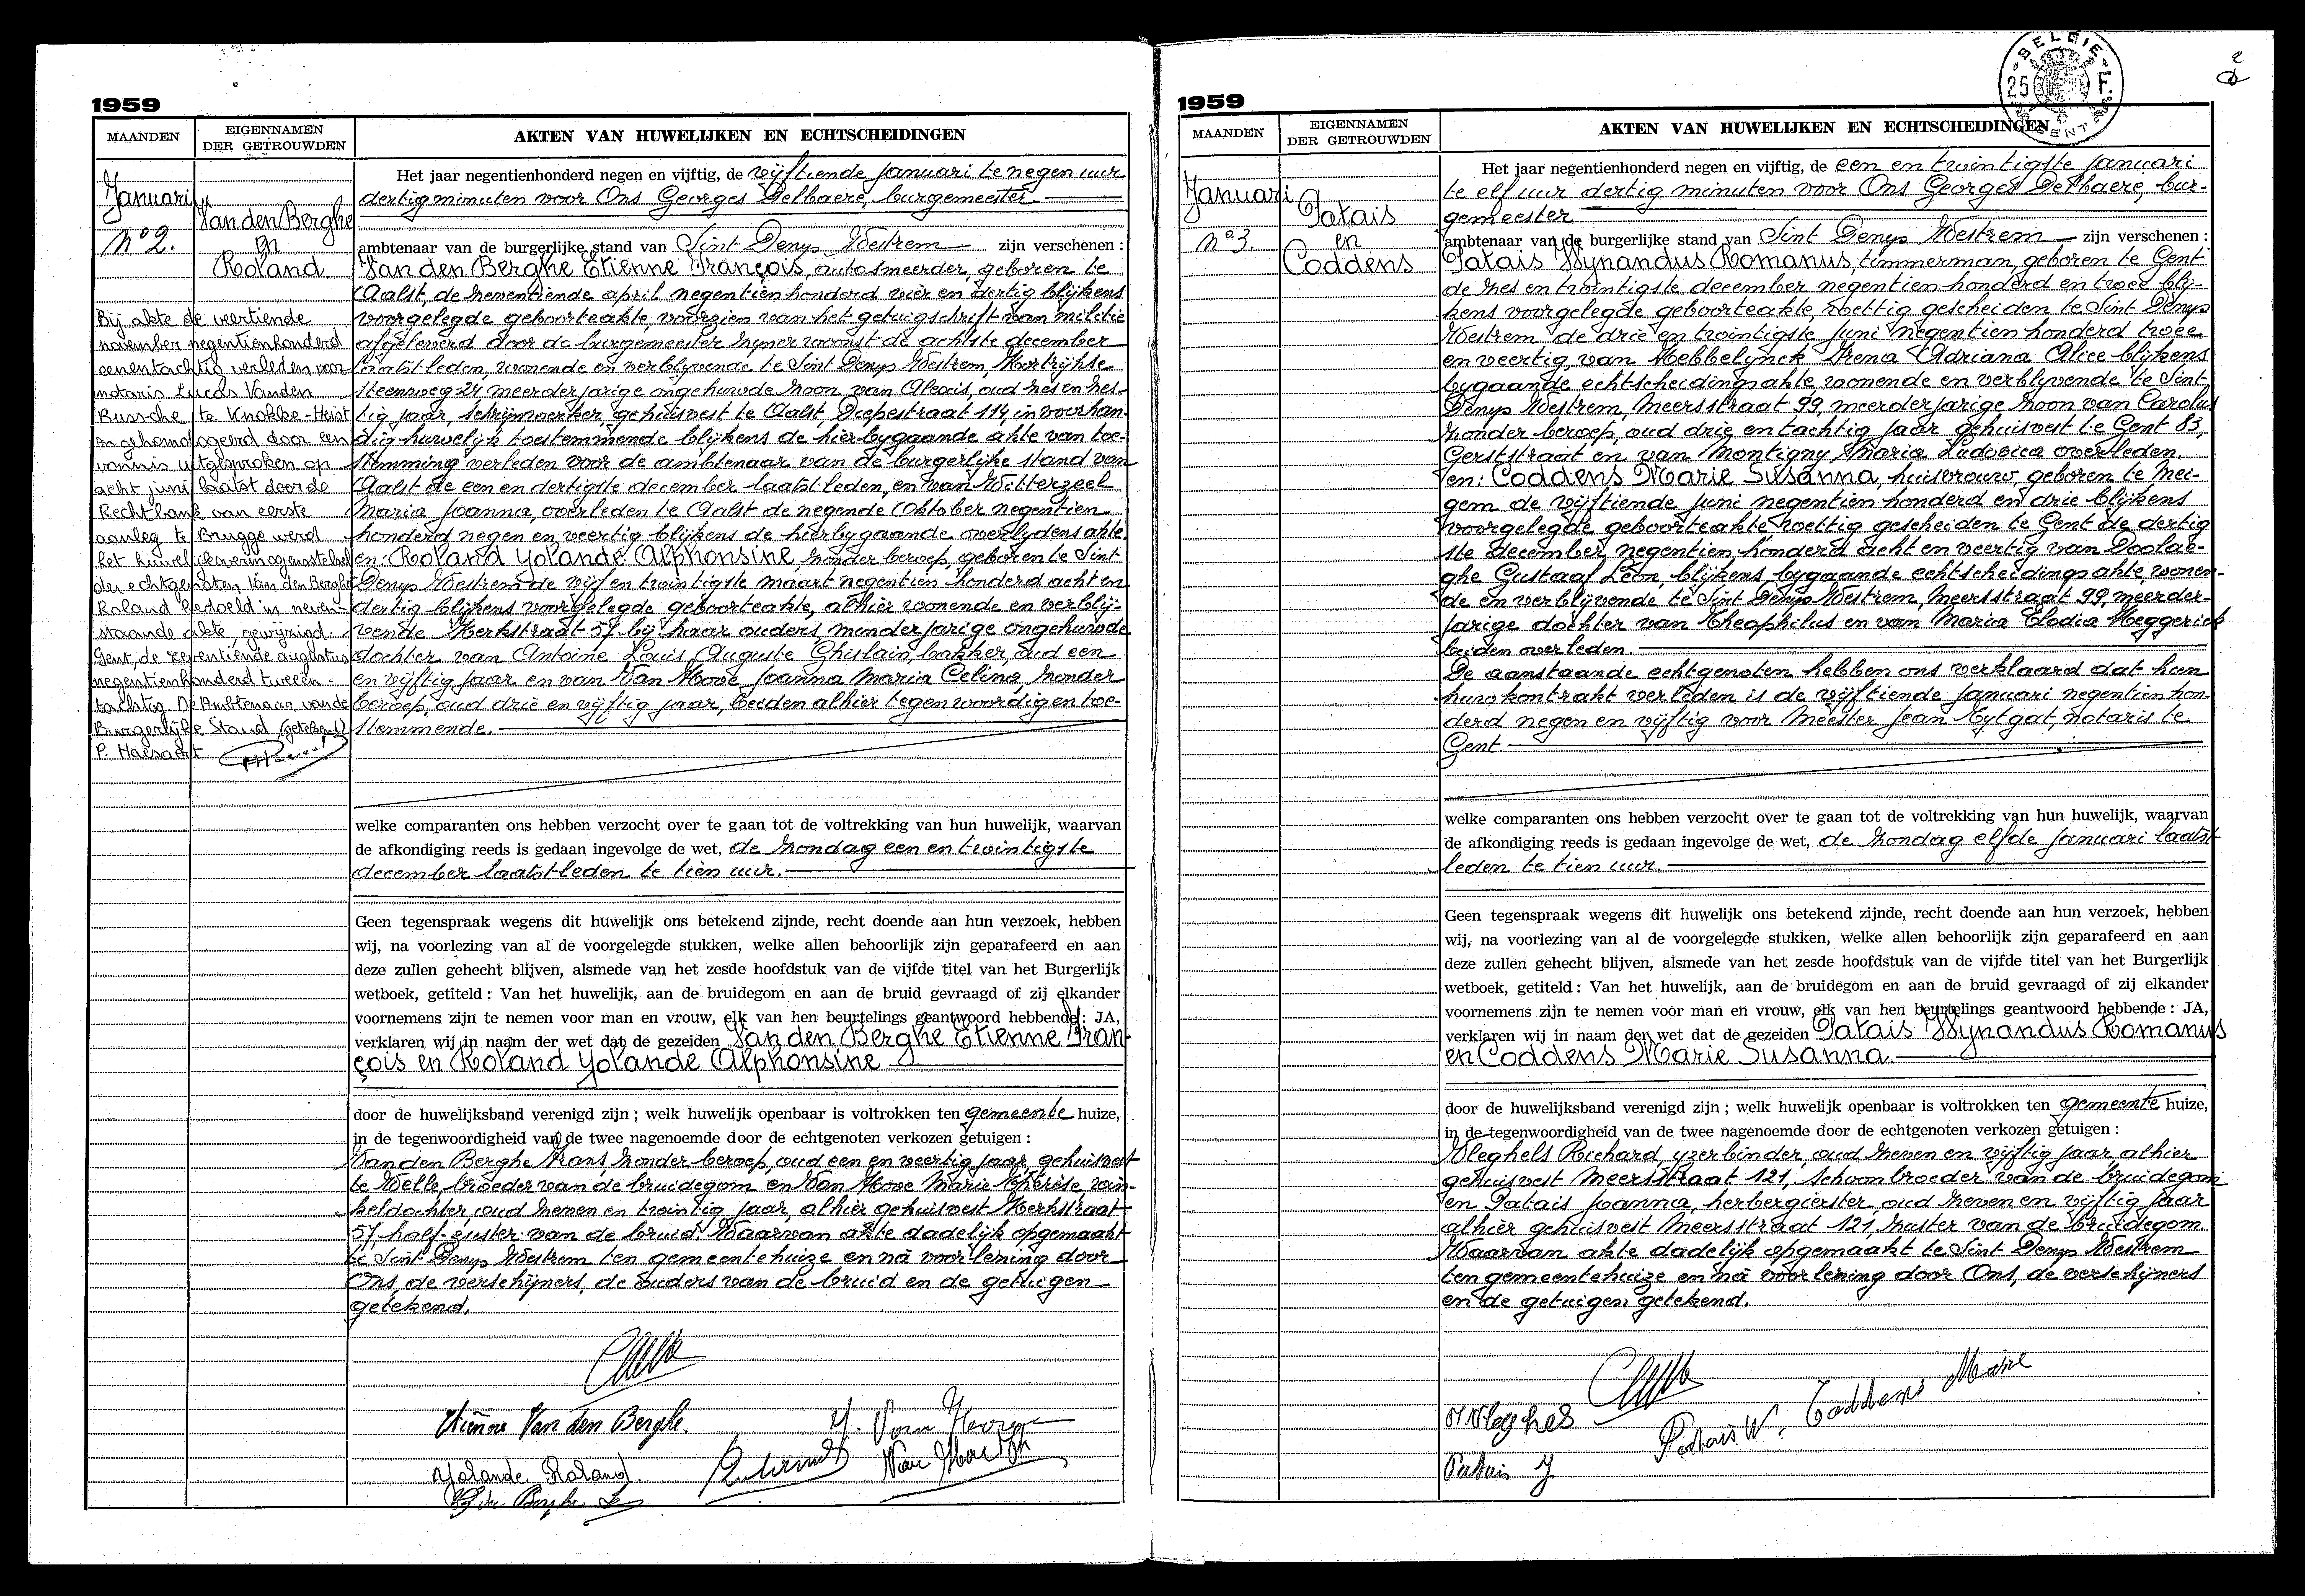 1959
MAANDEN
EIGENNAMEN
DER GETROUWDEN
AKTEN VAN HUWELIJKEN EN ECHTSCHEIDINGEN
Januari
Nº 2.
Van den Berghe
en
Roland
Bij akte de veertiende
november negentienhonderd
eenentachtig verleden voor
notaris Lucas Vanden
Bussche te Knokke-Heist
en gehomologeerd door een
vonnis uitgesproken op
acht juni laatst door de
Rechtbank van eerste
aanleg te Brugge werd
het huwelijksvermogensstelsel
der echtgenoten Van den Berghe-
Roland bedoeld in neven-
staande akte, gewijzigd.
Gent, de zeventiende augustus
negentienhonderd tweeën-
tachtig. De Ambtenaar van de
Burgerlijke Stand (getekend)
P. Haesaert
Het jaar negentienhonderd negen en vijftig, de vijftiende Januari te negen uur
dertig minuten voor Ons Georges Delbaere, burgemeester
ambtenaar van de burgerlijke stand van Sint Denys Westrem zijn verschenen :
Van den Berghe Etienne François, autosmeerder, geboren te
Aalst, de zeventiende april negentien honderd vier en dertig blijkens
voorgelegde geboorteakte, voorzien van het getuigschrift van militie
afgeleverd door de burgemeester zijner woonst de achtste december
laatst leden, wonende en verblyvende te Sint Denys Westrem, Kortrijkse
steenweg 24 meerderjarige ongehuwde zoon van Alexis, oud zes en zes-
tig jaar, schrijnwerker, gehuisvest te Aalst, Diepestraat 114, in voorhan-
dig huwelijk toestemmende blijkens de hierbygaande akte van toe-
stemming verleden voor de ambtenaar van de burgerlijke stand van
Aalst de een en dertigste december laatst leden, en van Witterzeel
Maria Joanna, overleden te Aalst de negende Oktober negentien
honderd negen en veertig blijkens de hierbygaande overlydensakte.
en: Roland Yolande Alphonsine zonder beroep, geboren te Sint
Denys Westrem de vijf en twintigste maart negentien honderd acht en
dertig blijkens voorgelegde geboorteakte, alhier wonende en verblij-
vende Kerkstraat 57 bij haar ouders, minderjarige ongehuwde
dochter van Antoine Louis Auguste Ghislain, bakker, oud een
en vijftig jaar en van Van Hove Joanna Maria Celina, zonder
beroep, oud drie en vijftig jaar, beiden alhier tegenwoordig en toe-
stemmende.
welke comparanten ons hebben verzocht over te gaan tot de voltrekking van hun huwelijk, waarvan
de afkondiging reeds is gedaan ingevolge de wet, de zondag een en twintigste
december laatst leden te tien uur.
Geen tegenspraak wegens dit huwelijk ons betekend zijnde, recht doende aan hun verzoek, hebben
wij, na voorlezing van al de voorgelegde stukken, welke allen behoorlijk zijn geparafeerd en aan
deze zullen gehecht blijven, alsmede van het zesde hoofdstuk van de vijfde titel van het Burgerlijk
wetboek, getiteld : Van het huwelijk, aan de bruidegom en aan de bruid gevraagd of zij elkander
voornemens zijn te nemen voor man en vrouw, elk van hen beurtelings geantwoord hebbende : JA,
verklaren wij in naam der wet dat de gezeiden Van den Berghe Etienne Fran-
çois en Roland Yolande Alphonsine
door de huwelijksband verenigd zijn ; welk huwelijk openbaar is voltrokken ten gemeente huize,
in de tegenwoordigheid van de twee nagenoemde door de echtgenoten verkozen getuigen :
Van den Berghe Frans zonder beroep, oud een en veertig jaar, gehuisvest
te Welle, broeder van de bruidegom en Van Hove Marie Thérèse, win-
keldochter, oud zeven en twintig jaar, alhier gehuisvest Kerkstraat
57, half-zuster van de bruid. Waarvan akte dadelijk opgemaakt
te Sint Denys Westrem ten gemeentehuize en na voorlezing door
Ons, de verschijners, de ouders van de bruid en de getuigen
getekend.
Etienne Van den Berghe.
Yolande Roland.
1959
MAANDEN
EIGENNAMEN
DER GETROUWDEN
AKTEN VAN HUWELIJKEN EN ECHTSCHEIDINGEN
BELGIE
25 F.
GENT
2
Januari
Nº 3.
Patais
en
Coddens
Het jaar negentienhonderd negen en vijftig, de een en twintigste Januari
te elf uur dertig minuten voor Ons Georges Delbaere, bur-
gemeester
ambtenaar van de burgerlijke stand van Sint Denys Westrem zijn verschenen :
Patais Wynandus Romanus, timmerman, geboren te Gent
de zes en twintigste december negentien honderd en twee blij-
kens voorgelegde geboorteakte, wettig gescheiden te Sint Denys
Westrem de drie en twintigste Juni negentien honderd twee
en veertig van Hebbelynck Irena Adriana Alice blijkens
bygaande echtscheidingsakte, wonende en verblyvende te Sint
Denys Westrem, Meersstraat 99, meerderjarige zoon van Carolus
zonder beroep, oud drie en tachtig jaar gehuisvest te Gent 83,
Gerststraat en van Montigny Maria Ludovica overleden.
en: Coddens Marie Susanna, huisvrouw, geboren te Mei-
gem de vijftiende juni negentien honderd en drie blijkens
voorgelegde geboorteakte wettig gescheiden te Gent de dertig
ste december negentien honderd acht en veertig van Doolae-
ghe Gustaaf Leon, blijkens bygaande echtscheidingsakte, wonen-
de en verblijvende te Sint Denys Westrem, Meersstraat 99, meerder-
jarige dochter van Theophilus en van Maria Elodia Heggerick
beiden overleden.
De aanstaande echtgenoten hebben ons verklaard dat hun
huwkontrakt verleden is de vijftiende Januari negentien hon-
derd negen en vijftig voor Meester Jean Cytgat, notaris te
Gent
welke comparanten ons hebben verzocht over te gaan tot de voltrekking van hun huwelijk, waarvan
de afkondiging reeds is gedaan ingevolge de wet, de zondag elfde Januari laatst
leden te tien uur.
Geen tegenspraak wegens dit huwelijk ons betekend zijnde, recht doende aan hun verzoek, hebben
wij, na voorlezing van al de voorgelegde stukken, welke allen behoorlijk zijn geparafeerd en aan
deze zullen gehecht blijven, alsmede van het zesde hoofdstuk van de vijfde titel van het Burgerlijk
wetboek, getiteld : Van het huwelijk, aan de bruidegom en aan de bruid gevraagd of zij elkander
voornemens zijn te nemen voor man en vrouw, elk van hen beurtelings geantwoord hebbende : JA,
verklaren wij in naam der wet dat de gezeiden Patais Wynandus Romanus
en Coddens Marie Susanna
door de huwelijksband verenigd zijn ; welk huwelijk openbaar is voltrokken ten gemeente huize,
in de tegenwoordigheid van de twee nagenoemde door de echtgenoten verkozen getuigen :
Vleghels Richard, yzerbinder, oud zeven en vijftig jaar, alhier
gehuisvest Meersstraat 121, schoonbroeder van de bruidegom
en Patais Joanna, herbergierster, oud zeven en vijftig jaar
alhier gehuisvest Meersstraat 121, zuster van de bruidegom
Waarvan akte dadelijk opgemaakt te Sint Denys Westrem
ten gemeentehuize en na voorlezing door Ons, de verschijners
en de getuigen getekend.
Patais W.
Coddens Marie
Patais J